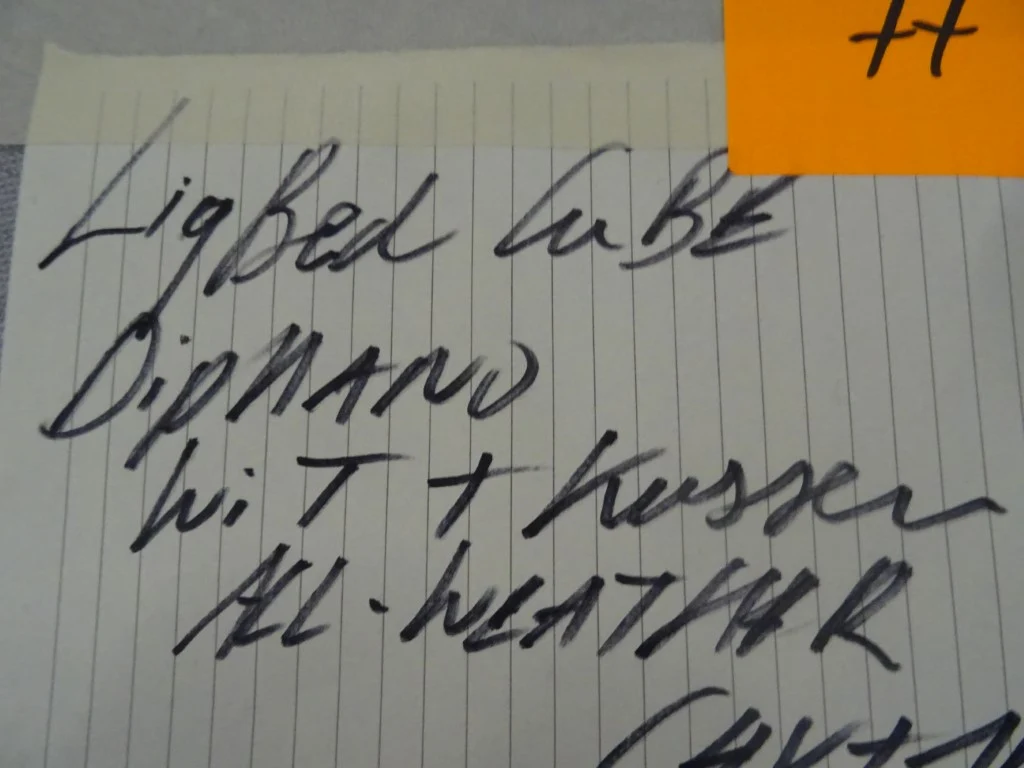 LigBed CuBE
DipHANO
WiT + Kussen
ALL-WEATHER